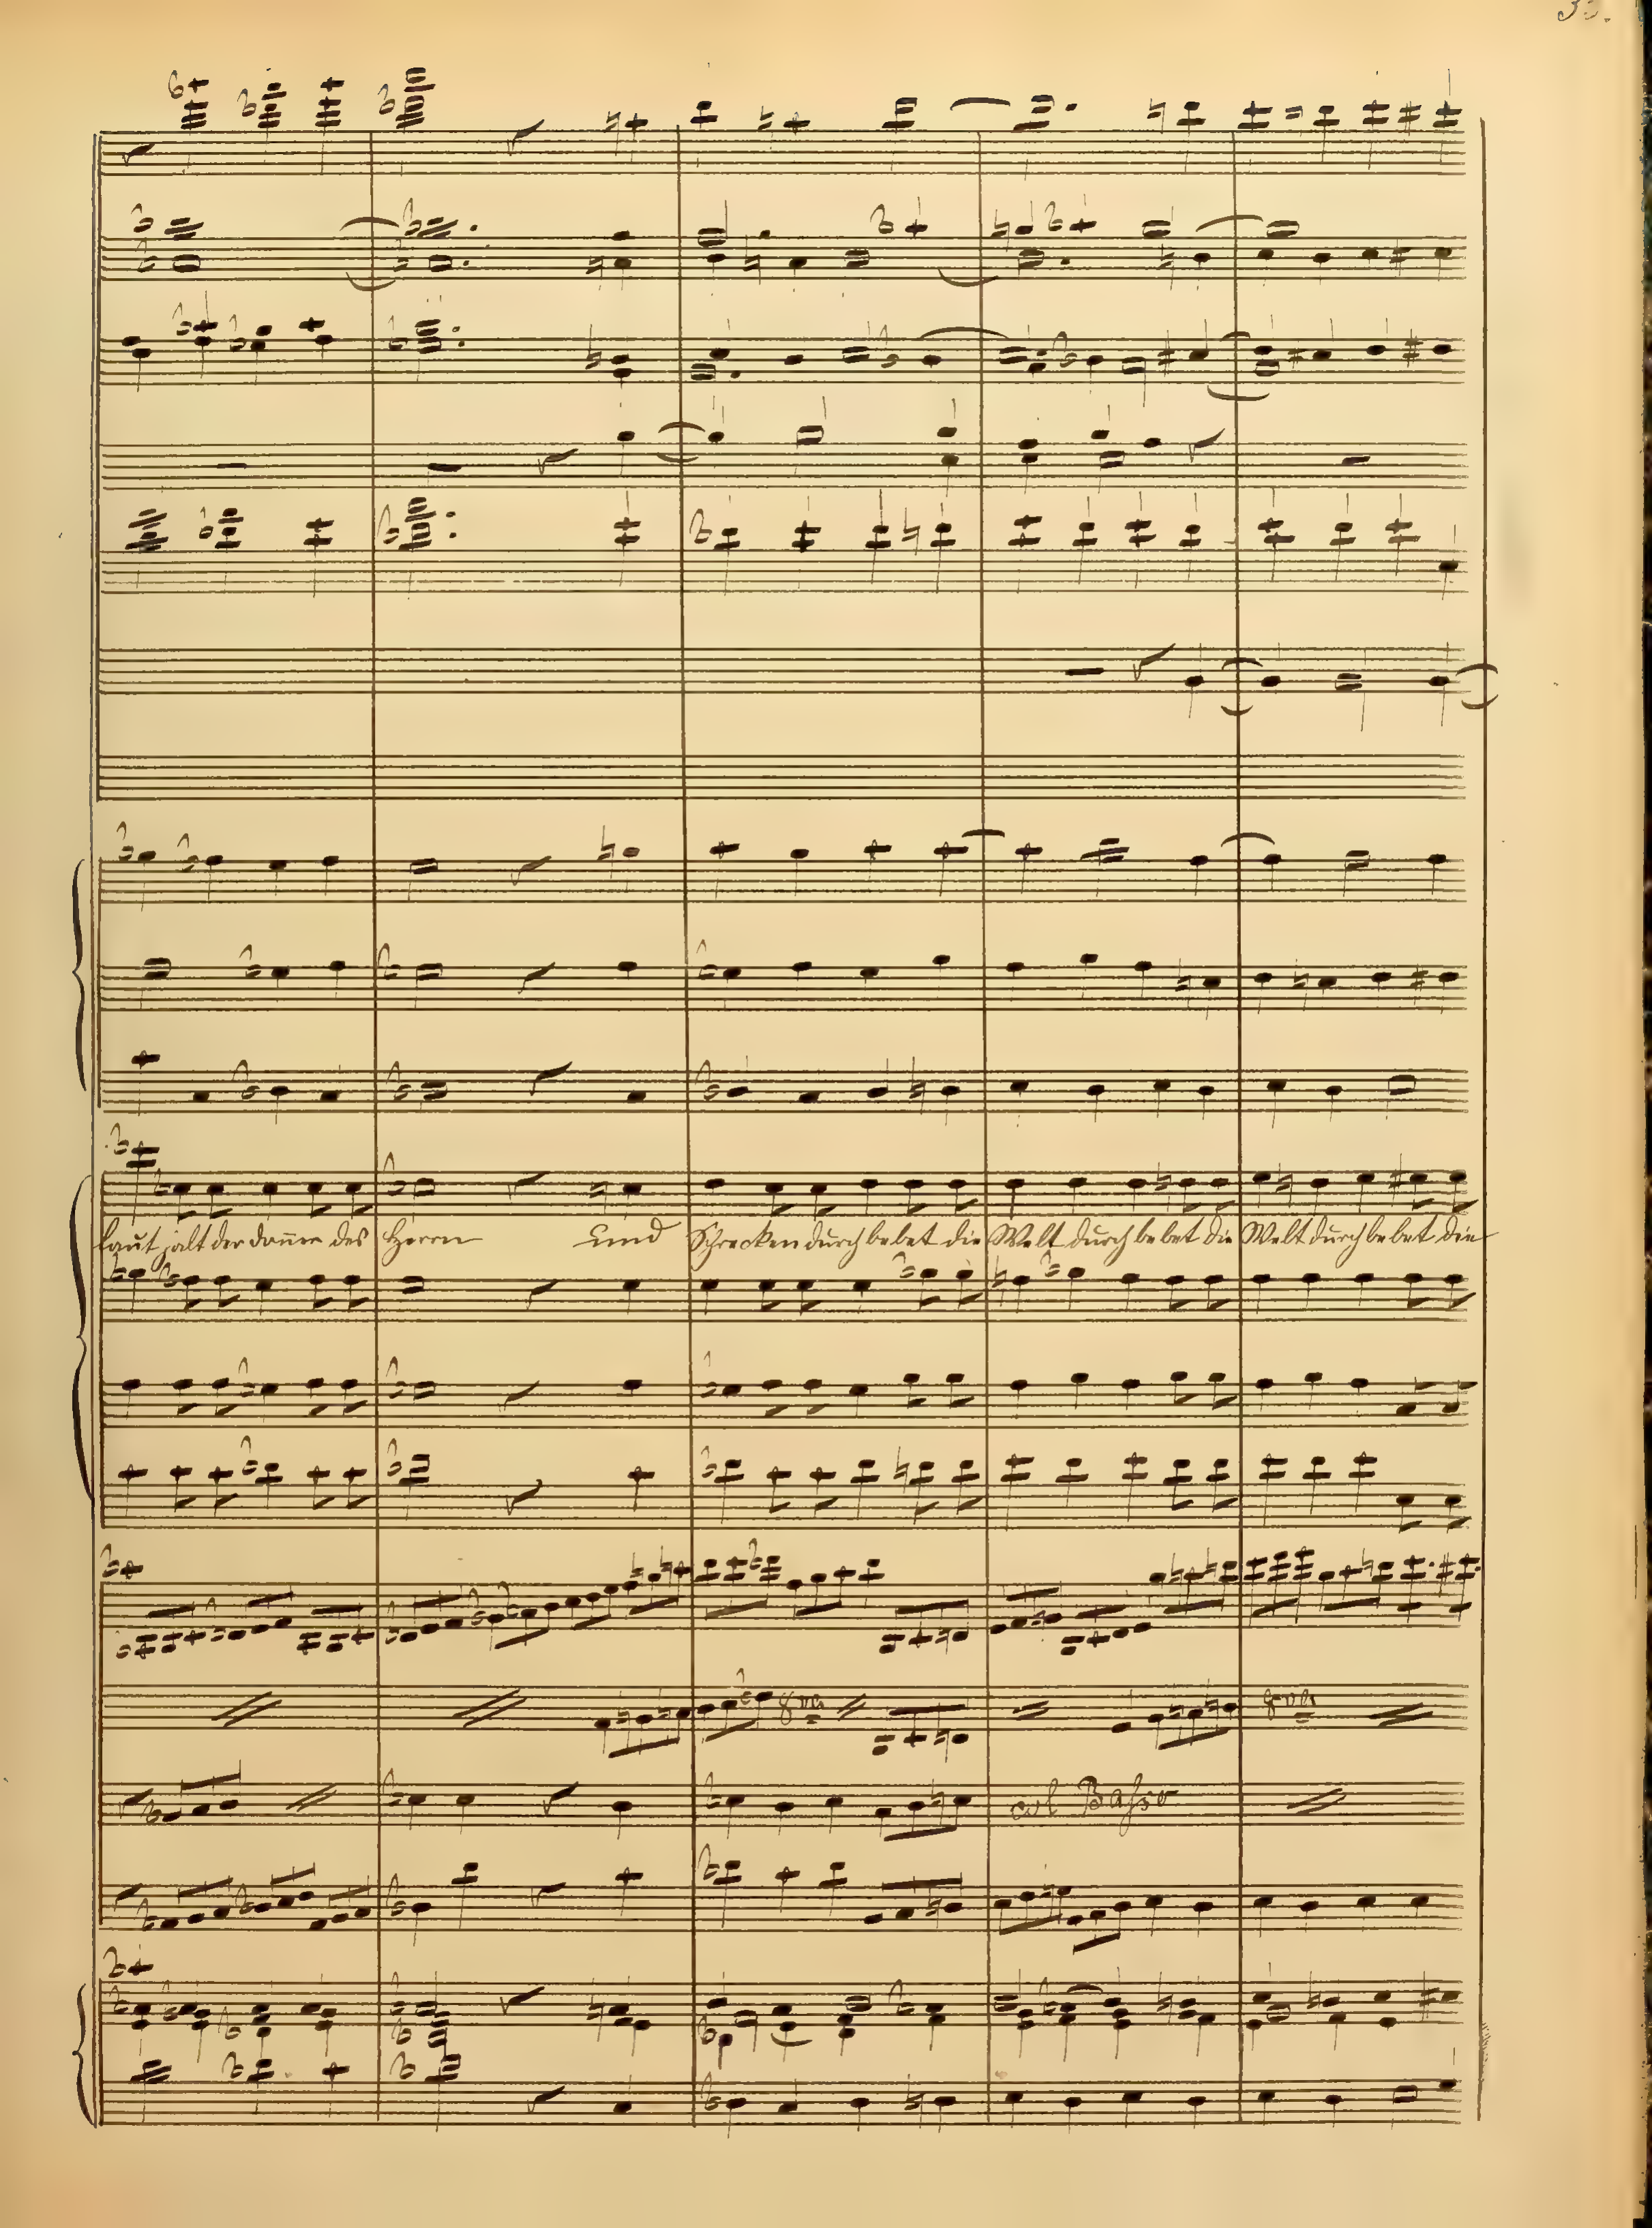 laut halt der donner des Herrn und Schrecken durch bebet die Welt durch bebet die Welt durch bebet die
8va
8va
col Basso